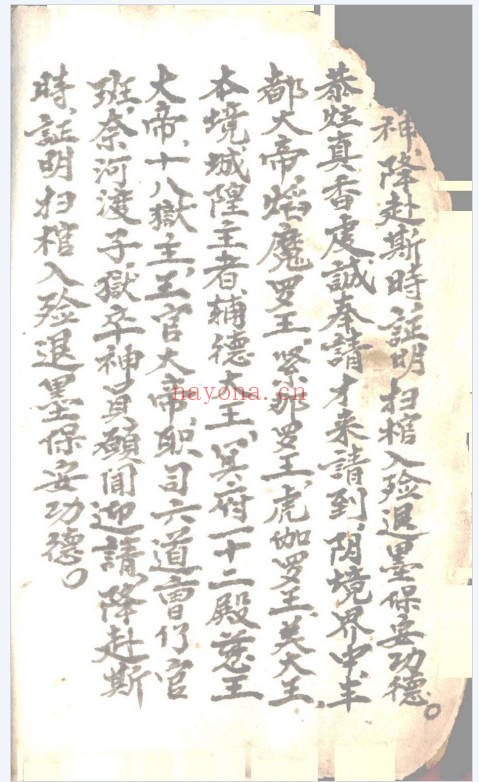 神降赴斯時、証明扫棺入殓退墨保安功德。
恭炷真香虔誠奉請才来請到、阴境界中、丰
都大帝、焰魔罗王、紧那罗王、虎伽罗王、关大王、
本境城隍王者、辅德大王、冥府一十二殿慈王
大帝、十八獄主、王官大帝、职司六道曹仃官
班、奈河渡子、獄卒神員、願闻迎請、降赴斯
時、証明扫棺入殓退墨保安功德。
nayona.cn